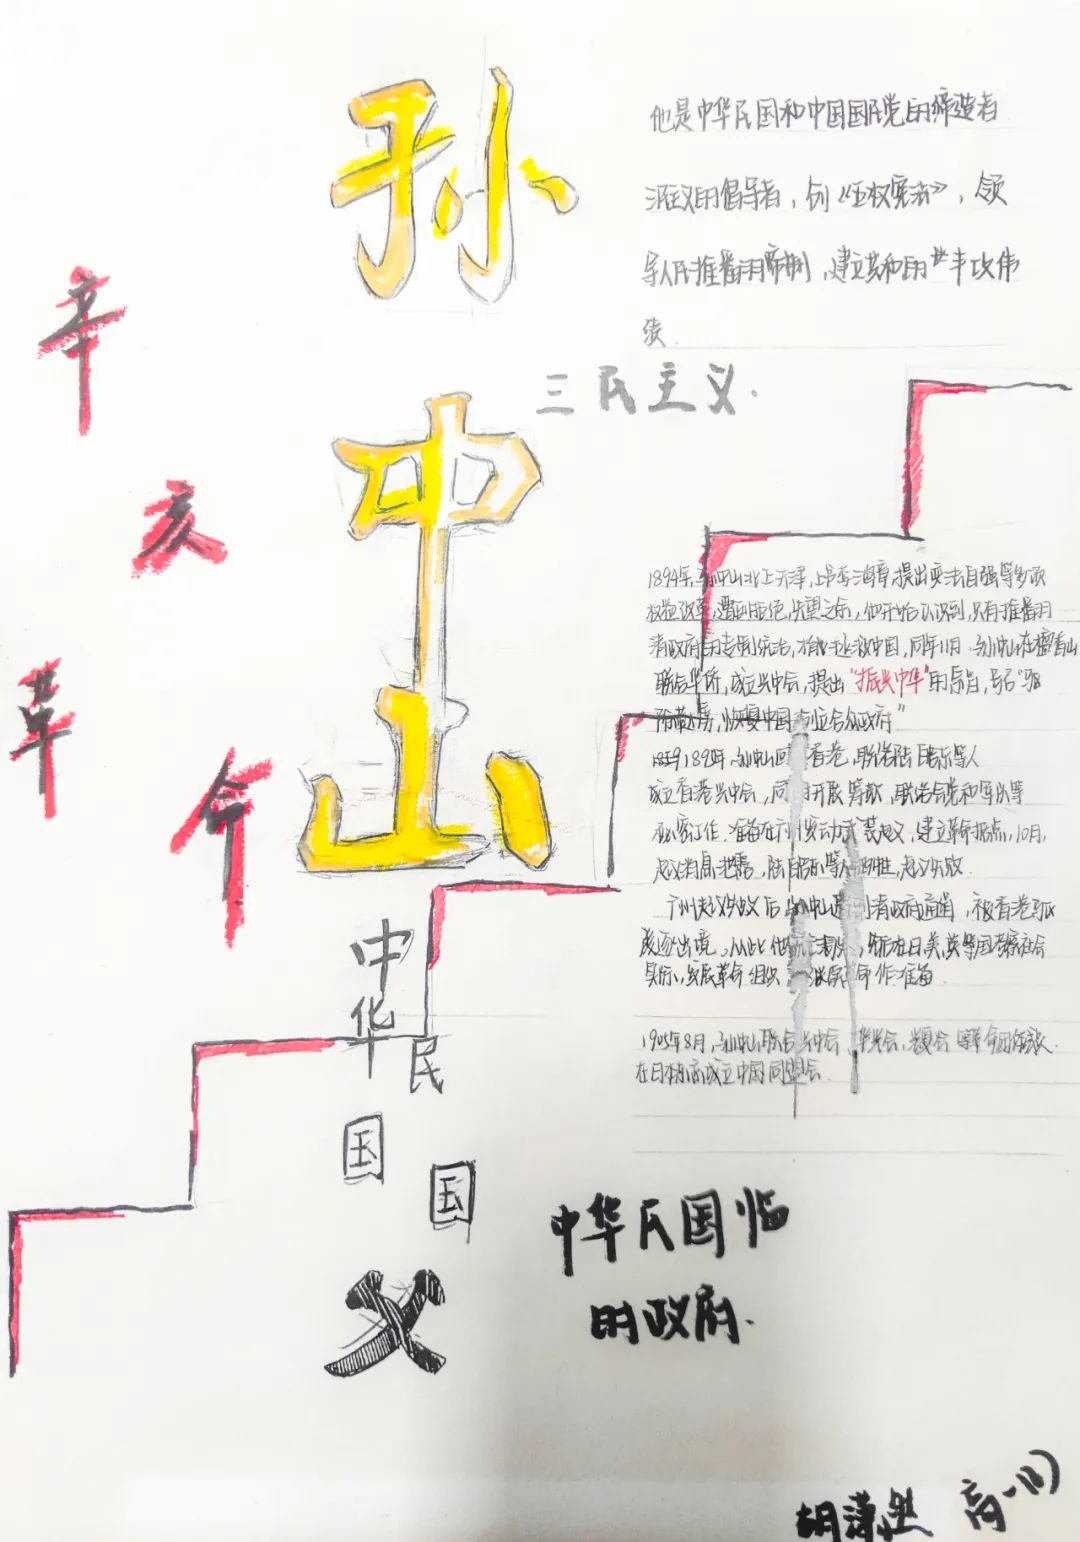 孙中山
辛亥革命
他是中华民国和中国国民党的缔造者
三民主义的倡导者，创《五权宪法》，领
导人民推翻帝制，建立共和的丰功伟
绩.
三民主义.
1894年，孙中山北上天津，上书李鸿章，提出变法自强等多项
权益改革，遭到拒绝，失望之余，他开始认识到，只有推翻
清政府的专制统治，才能拯救中国，同年11月，孙中山在檀香山
联合华侨，成立兴中会，提出“振兴中华”的宗旨，号召“驱
除鞑虏，恢复中国，创立合众政府”
孙中山回香港，联络陆皓东等人
成立香港兴中会，同时开展筹款，联络会党和军火等
秘密工作. 准备在广州发动武装起义，建立革命据点，10月，
起义消息泄露，陆皓东等人牺牲，起义失败.
广州起义失败后，孙中山遭到清政府通缉，被香港驱
逐出境。从此他流亡海外，先后在日美，英等国考察社会
实际，发展革命组织，作准备.
1905年8月，孙中山联合兴中会，华兴会，光复会等革命团体，
在日本东京成立中国同盟会.
中华民国国父
中华民国临
时政府.
胡潇 高一(1)